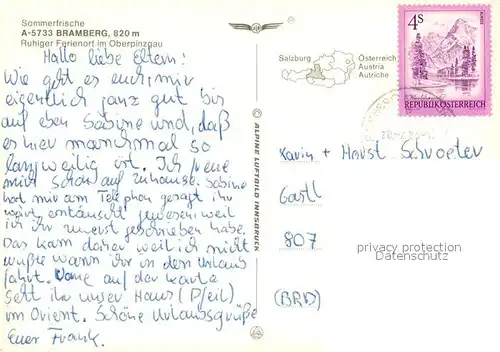 Sommerfrische
A-5733 BRAMBERG, 820 m
Ruhiger Ferienort im Oberpinzgau
Hallo liebe Eltern!
Wie geht es euch, mir
eigentlich ganz gut bis
auf eben Sabine und, daß
es hier manchmal so
langweilig ist. Ich freue
mich schon auf zuhause. Sabine
hat mir am Telephon gesagt ihr
wärt enttäuscht gewesen weil
ich ihr zuerst geschrieben habe.
Das kam daher weil ich nicht
wußte wann ihr in den Urlaub
fahrt. Vorne auf der Karte
seht ihr unser Haus (Pfeil)
im Orient. Schöne Urlaubsgrüße
Euer Frank.
© ALPINE LUFTBILD INNSBRUCK
Salzburg
Österreich
Austria
Autriche
4S
REPUBLIK ÖSTERREICH
Karin + Horst Schroeter
Gastl
807
(BRD)
privacy protection
Datenschutz